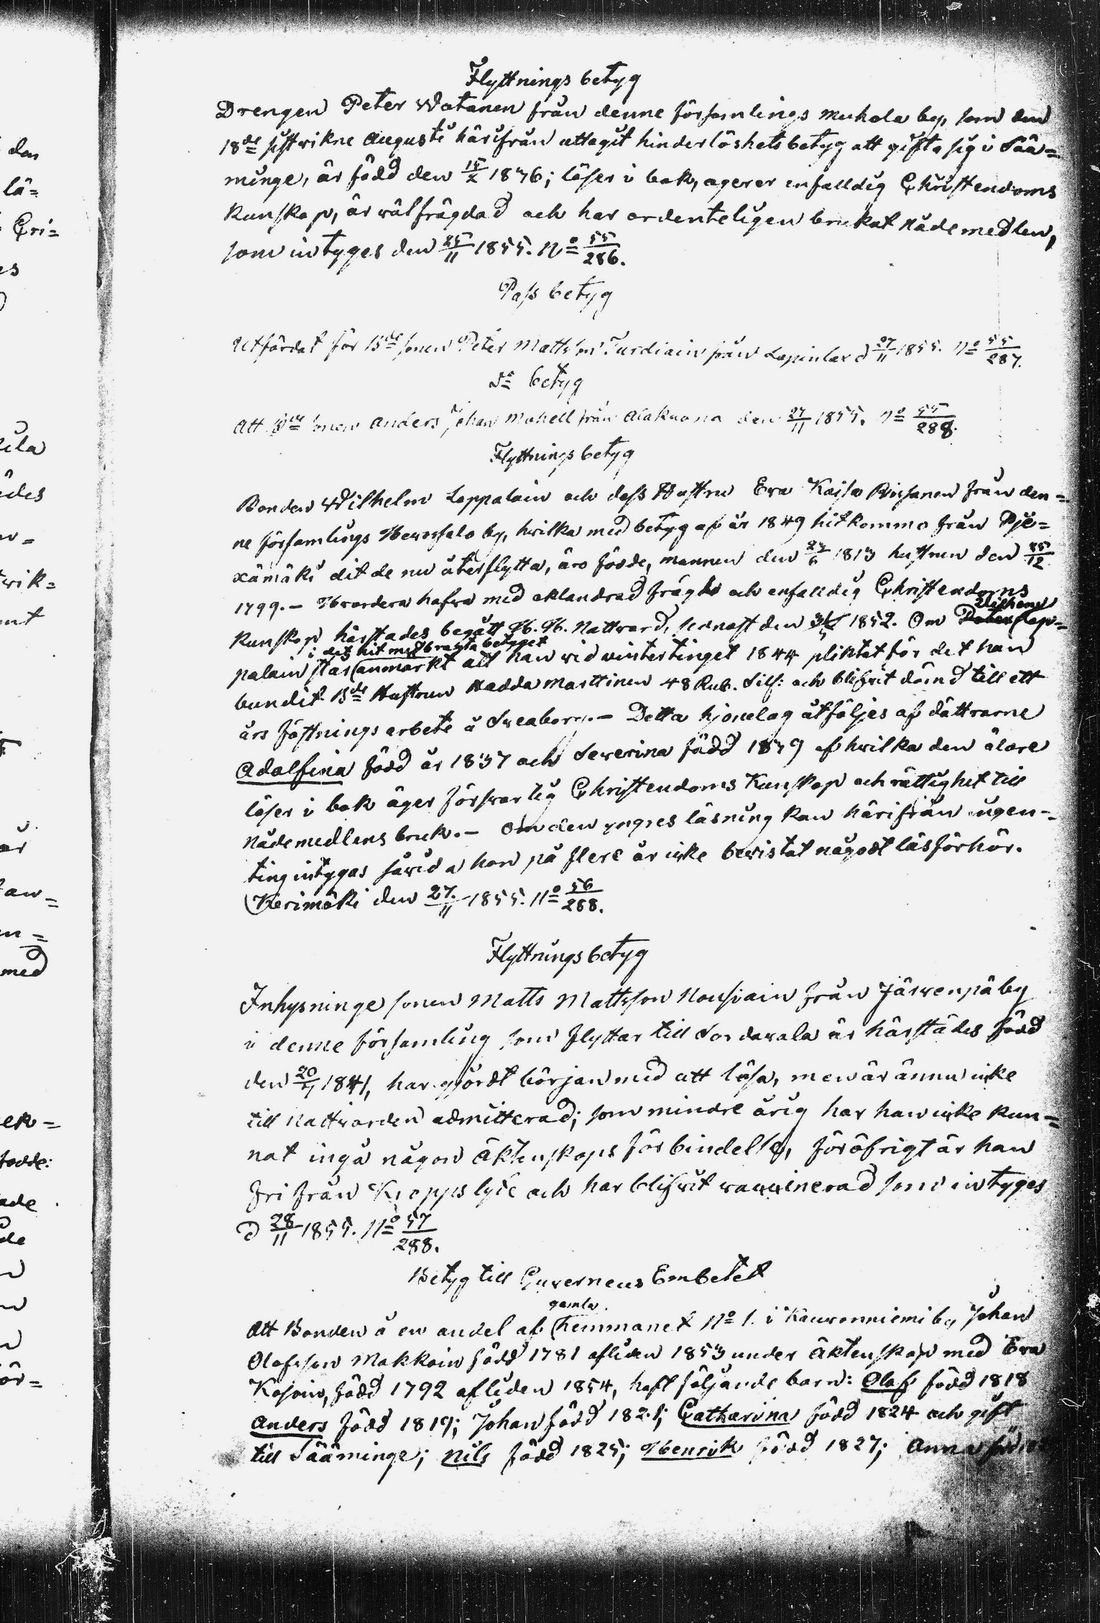 den
lä-
Eri=
es
ula
edes
w-
wik-
mt
år
aw=
m=
med
ek=
födde:
ade
de
ör=
Flyttnings betyg
Drengen Peter Watanen från denne församlings Muhola by, som den
18de sistvikne Augusti härifrån uttagit hinderlöshetsbetyg att gifta sig i Sää=
minge, är född den 15/2 1836; läser i bok, agerer enfalldig Christendoms
kunskap, är wälfrägdad och har ordenteligen brukat nådemedlen,
som intyges den 25/11 1855. No 55/286.
Pass betyg
Utfärdat för Bde sonen Peter Mattsson Turdiain från Lapinlax d 27/11 1855. No 55/287.
Do betyg
Att Bde sonen Anders Johan Muhell från Alakuona den 27/11 1855. No 55/288.
Flyttnings betyg
Bonden Wilhelm Loppalain och dess Hustru Eva Kaisa från den=
ne församlings Hernsalo by, hvilka med betyg af år 1849 hitkommo från Pje=
xämäki dit de nu återflytta, äro födde, mannen den 24/6 1813 hustrun den 25/12
1799. - Hvardera hafva med oklandrad frägd och enfalldig Christendoms
kunskap härstädes begått H. H. Nattvard, sednast den 1852. Om Wilhelm Lop=
i det hit medbragta betyget
palain står anmärkt att han wid wintertinget 1844 pliktat för det han
bundit Bde Hustrun Hadda Marttinen 48 Rub. Silf: och blifvit dömd till ett
års fästnings arbete å Sveaborg. - Detta hjonelag åtföljes af döttrarne
Adalfina född år 1837 och Severina född 1839 af hvilka den äldre
läser i bok äger försvarlig Christendoms kunskap och rättighet till
nådemedlens bruk. - Om den yngres läsning kan härifrån ingen-
ting intygas såvida hon på flere år icke bevistat något läsförhör.
Kerimäki den 27/11 1855. No 56/288.
Flyttnings betyg
Inhysninge sonen Matts Mattsson Nousiain från Järvenpä by
i denne församling som flyttar till Sordavala är härstädes född
den 20/9 1841, har gjordt början med att läsa, men är ännu icke
till Nattvarden admitterad; som mindre årig har han icke kun=
nat ingå någon Äktenskaps förbindelse, föröfrigt är han
fri från Kroppslyte och har blifvit vaccinerad som intyges
d 28/11 1855. No 57/288.
Betyg till Guverneurs Embetet
gamla
Att Bonden å en andel af Hemmanet No 1. i Kauvonniemi by Johan
Olofsson Makkoin född 1781 afliden 1853 under Äktenskap med Eva
Kosoin, född 1792 afliden 1854, haft följande barn: Olof född 1818
Anders född 1819; Johan född 1821; Catharina född 1824 och gift
till Sääminge; Nils född 1825; Henrik född 1827; Anna född